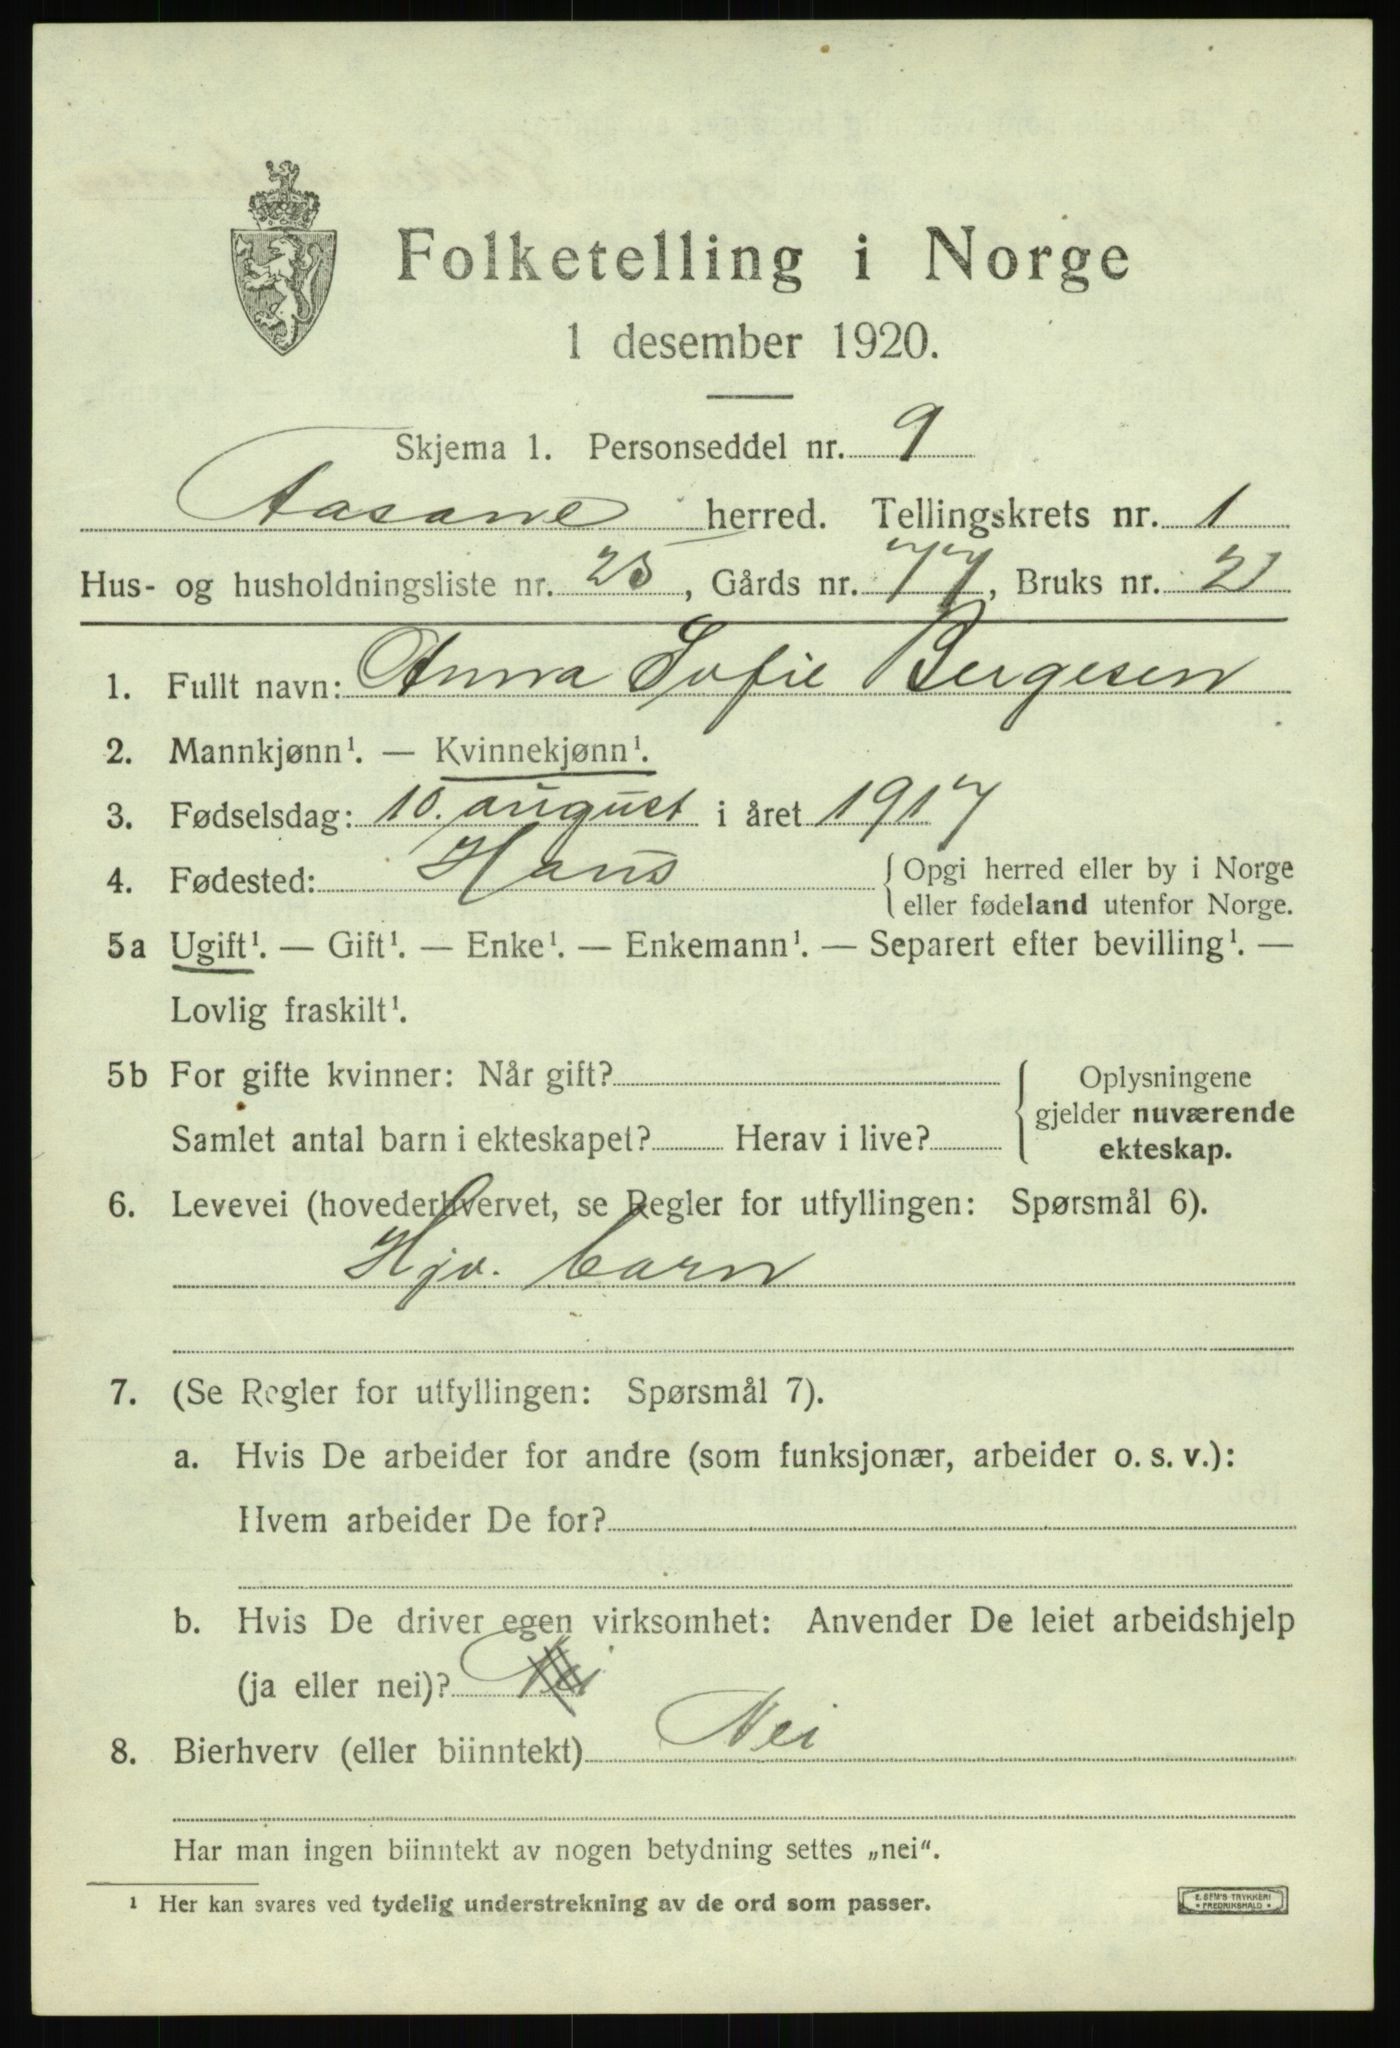 Folketelling i Norge
1 desember 1920.
Skjema 1. Personseddel nr. 9
Aasane herred. Tellingskrets nr. 1
Hus- og husholdningsliste nr. 25, Gårds nr. 77, Bruks nr. 21
1. Fullt navn: Anna Sofie Bergesen
2. Mannkjønn¹. — Kvinnekjønn¹.
3. Fødselsdag: 10. august i året 1917
4. Fødested: Haus { Opgi herred eller by i Norge
eller fødeland utenfor Norge.
5a Ugift¹. — Gift¹. — Enke¹. — Enkemann¹. — Separert efter bevilling¹. —
Lovlig fraskilt¹.
5b For gifte kvinner: Når gift? { Oplysningene
gjelder nuværende
Samlet antal barn i ekteskapet? Herav i live?
ekteskap.
6. Levevei (hovederhvervet, se Regler for utfyllingen: Spørsmål 6).
Hjv. barn
7. (Se Regler for utfyllingen: Spørsmål 7).
a. Hvis De arbeider for andre (som funksjonær, arbeider o. s. v.):
Hvem arbeider De for?
b. Hvis De driver egen virksomhet: Anvender De leiet arbeidshjelp
(ja eller nei)? Nei
8. Bierhverv (eller biinntekt) Nei
Har man ingen biinntekt av nogen betydning settes „nei“.
¹ Her kan svares ved tydelig understrekning av de ord som passer.
E. SEM'S TRYKKERI
* FREDRIKSHALD *